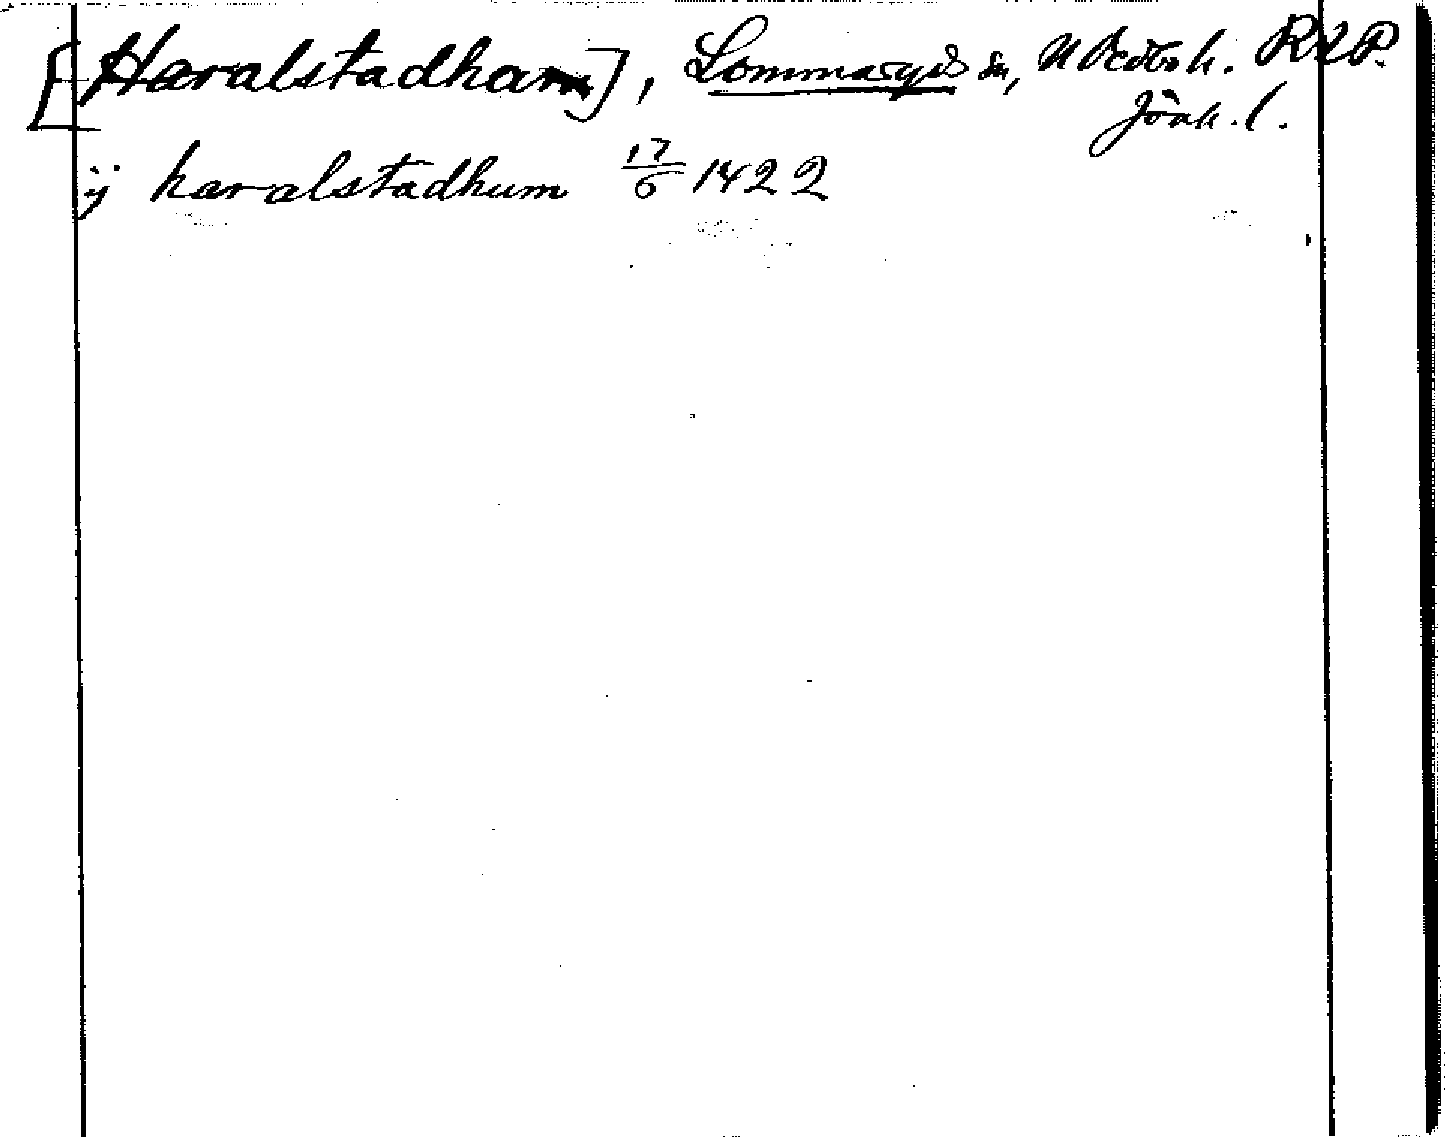 [Haralstadham], Lommaryds sn, N Vedbo h. RAP.
Jönk. l.
ÿ haralstadhum 17/6 1422